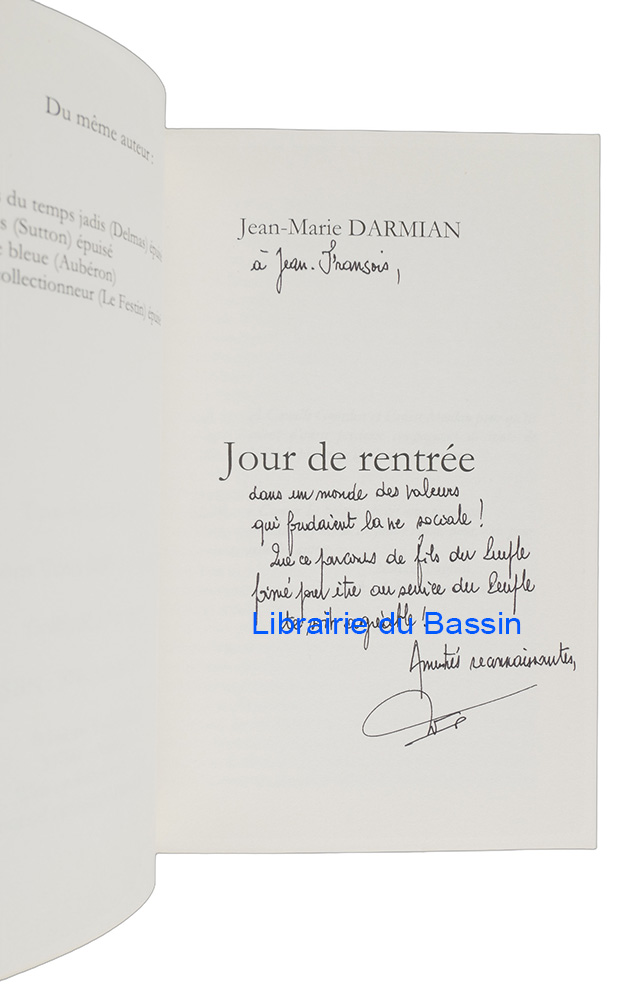 Du même auteur :
du temps jadis (Delmas) épuisé
s (Sutton) épuisé
e bleue (Aubéron)
collectionneur (Le Festin) épuisé
Jean-Marie DARMIAN
à Jean-François,
Jour de rentrée
dans un monde des valeurs
qui fondaient la vie sociale !
Que ce parcours de fils du Peuple
formé pour être au service du Peuple
te soit agréable !
Librairie du Bassin
Amitiés reconnaissantes,